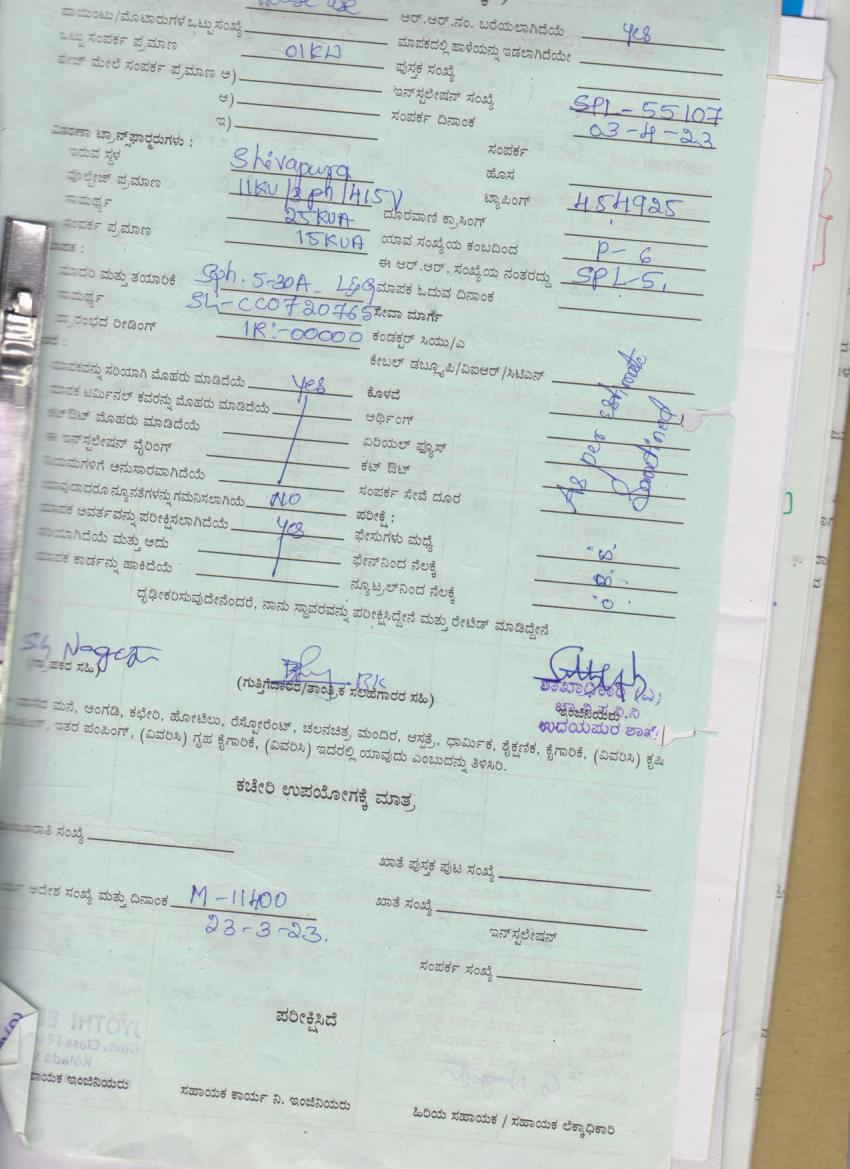 ಆರ್.ಆರ್.ನಂ. ಬರೆಯಲಾಗಿದೆಯೆ yes
ಪಾಯಿಂಟು/ಮೋಟಾರುಗಳ ಒಟ್ಟು ಸಂಖ್ಯೆ
ಮಾಪಕದಲ್ಲಿ ಹಾಳೆಯನ್ನು ಇಡಲಾಗಿದೆಯೇ
ಒಟ್ಟು ಸಂಪರ್ಕ ಪ್ರಮಾಣ 01KW
ಪುಸ್ತಕ ಸಂಖ್ಯೆ
ಮೇಲೆ ಸಂಪರ್ಕ ಪ್ರಮಾಣ ಅ)
ಇನ್‌ಸ್ಟಲೇಷನ್ ಸಂಖ್ಯೆ SPL-55107
ಆ)
ಸಂಪರ್ಕ ದಿನಾಂಕ 03-4-23
ಇ)
ಸಂಪರ್ಕ
ವಿತರಣಾ ಟ್ರಾನ್ಸ್‌ಫಾರ್ಮರುಗಳು :
ಇರುವ ಸ್ಥಳ Shivapura
ಹೊಸ
ವೋಲ್ಟೇಜ್ ಪ್ರಮಾಣ 11KV/3ph/415V
ಟ್ಯಾಪಿಂಗ್ 454925
ಸಾಮರ್ಥ್ಯ 25KVA
ದೂರವಾಣಿ ಕ್ರಾಸಿಂಗ್
ಸಂಪರ್ಕ ಪ್ರಮಾಣ 15KVA
ಯಾವ ಸಂಖ್ಯೆಯ ಕಂಬದಿಂದ P-6
ಈ ಆರ್.ಆರ್. ಸಂಖ್ಯೆಯ ನಂತರದ್ದು SPL-5
ಮಾದರಿ ಮತ್ತು ತಯಾರಿಕೆ 5-30A L&G
ಮಾಪಕ ಓದುವ ದಿನಾಂಕ
ಸಾಮರ್ಥ್ಯ SL-CC0720765
ಸೇವಾ ಮಾರ್ಗ
ಪ್ರಾರಂಭದ ರೀಡಿಂಗ್ IR:-00000
ಕಂಡಕ್ಟರ್ ಸಿಯು/ಎ
ಕೇಬಲ್ ಡಬ್ಲ್ಯೂಪಿ/ವಿಐಆರ್/ಸಿಟಿಎಸ್
ಮಾಪಕವನ್ನು ಸರಿಯಾಗಿ ಮೊಹರು ಮಾಡಿದೆಯೆ yes
ಕೊಳವೆ
ಮಾಪಕ ಟರ್ಮಿನಲ್ ಕವರನ್ನು ಮೊಹರು ಮಾಡಿದೆಯೆ
ಅರ್ಥಿಂಗ್
ಕಟ್‌ಔಟ್ ಮೊಹರು ಮಾಡಿದೆಯೆ
ಏರಿಯಲ್ ಫ್ಯೂಸ್
As per estimate
Sanctioned
ಈ ಇನ್‌ಸ್ಟಲೇಷನ್ ವೈರಿಂಗ್
ಕಟ್ ಔಟ್
ನಿಯಮಗಳಿಗೆ ಅನುಸಾರವಾಗಿದೆಯೆ
ಸಂಪರ್ಕ ಸೇವೆ ದೂರ
ಯಾವುದಾದರೂ ನ್ಯೂನತೆಗಳನ್ನು ಗಮನಿಸಲಾಗಿಯೆ NO
ಪರೀಕ್ಷೆ :
ಮಾಪಕ ಅವರ್ತವನ್ನು ಪರೀಕ್ಷಿಸಲಾಗಿದೆಯೆ yes
ಫೇಸುಗಳು ಮಧ್ಯೆ
ಸರಿಯಾಗಿದೆಯೆ ಮತ್ತು ಅದು
ಫೇಸ್‌ನಿಂದ ನೆಲಕ್ಕೆ
ಮಾಪಕ ಕಾರ್ಡನ್ನು ಹಾಕಿದೆಯೆ
ನ್ಯೂಟ್ರಲ್‌ನಿಂದ ನೆಲಕ್ಕೆ
ದೃಢೀಕರಿಸುವುದೇನೆಂದರೆ, ನಾನು ಸ್ಥಾವರವನ್ನು ಪರೀಕ್ಷಿಸಿದ್ದೇನೆ ಮತ್ತು ರೇಟೆಡ್ ಮಾಡಿದ್ದೇನೆ
(ಗ್ರಾಹಕರ ಸಹಿ)
(ಗುತ್ತಿಗೆದಾರರ/ತಾಂತ್ರಿಕ ಸಲಹೆಗಾರರ ಸಹಿ)
ಇಂಜಿನಿಯರು
ಉದಯಪುರ ಶಾಖೆ
ಮನೆ, ಅಂಗಡಿ, ಕಛೇರಿ, ಹೋಟೆಲು, ರೆಸ್ಟೋರೆಂಟ್, ಚಲನಚಿತ್ರ, ಮಂದಿರ, ಆಸ್ಪತ್ರೆ, ಧಾರ್ಮಿಕ, ಶೈಕ್ಷಣಿಕ, ಕೈಗಾರಿಕೆ, (ವಿವರಿಸಿ) ಕೃಷಿ
ಇತರ ಪಂಪಿಂಗ್, (ವಿವರಿಸಿ) ಗೃಹ ಕೈಗಾರಿಕೆ, (ವಿವರಿಸಿ) ಇದರಲ್ಲಿ ಯಾವುದು ಎಂಬುದನ್ನು ತಿಳಿಸಿರಿ.
ಕಚೇರಿ ಉಪಯೋಗಕ್ಕೆ ಮಾತ್ರ
ಸಂಖ್ಯೆ
ಖಾತೆ ಪುಸ್ತಕ ಪುಟ ಸಂಖ್ಯೆ
ಆದೇಶ ಸಂಖ್ಯೆ ಮತ್ತು ದಿನಾಂಕ M-11400
ಖಾತೆ ಸಂಖ್ಯೆ
23-3-23.
ಇನ್‌ಸ್ಟಲೇಷನ್
ಸಂಪರ್ಕ ಸಂಖ್ಯೆ
ಪರೀಕ್ಷಿಸಿದೆ
ಇಂಜಿನಿಯರು
ಸಹಾಯಕ ಕಾರ್ಯ ನಿ. ಇಂಜಿನಿಯರು
ಹಿರಿಯ ಸಹಾಯಕ / ಸಹಾಯಕ ಲೆಕ್ಕಾಧಿಕಾರಿ